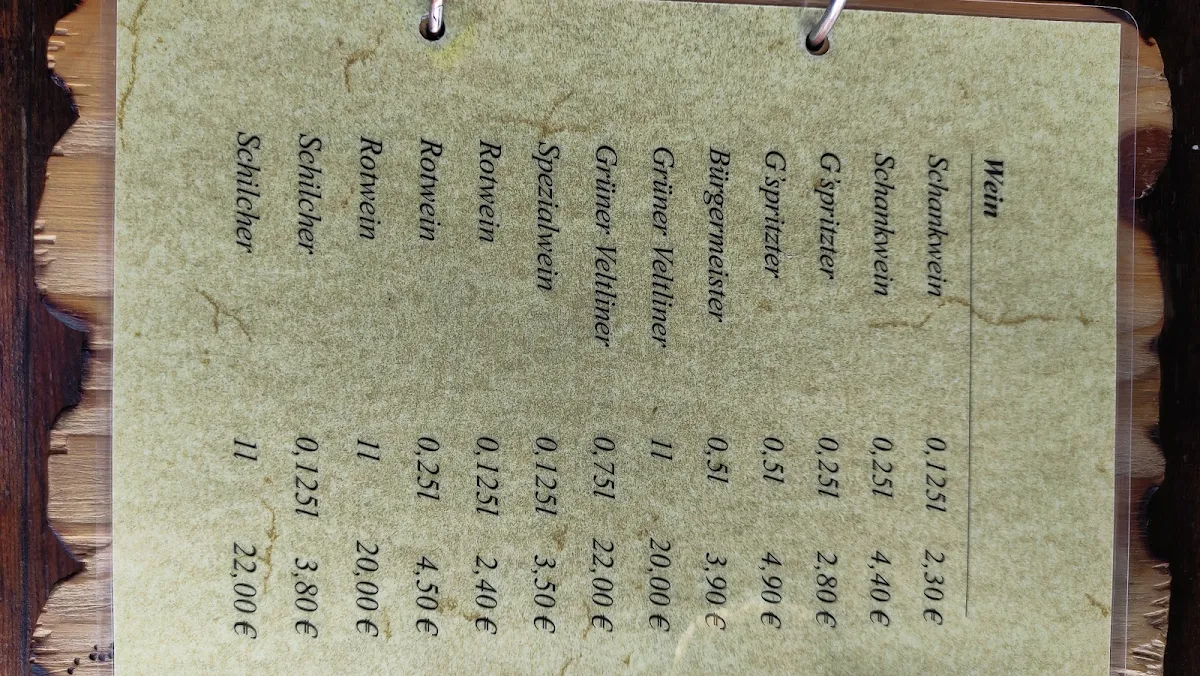 Wein
Schankwein 0,125l 2,30 €
Schankwein 0,25l 4,40 €
G'spritzter 0,25l 2,80 €
G'spritzter 0,5l 4,90 €
Bürgermeister 0,5l 3,90 €
Grüner Veltliner 1l 20,00 €
Grüner Veltliner 0,75l 22,00 €
Spezialwein 0,125l 3,50 €
Rotwein 0,125l 2,40 €
Rotwein 0,25l 4,50 €
Rotwein 1l 20,00 €
Schilcher 0,125l 3,80 €
Schilcher 1l 22,00 €